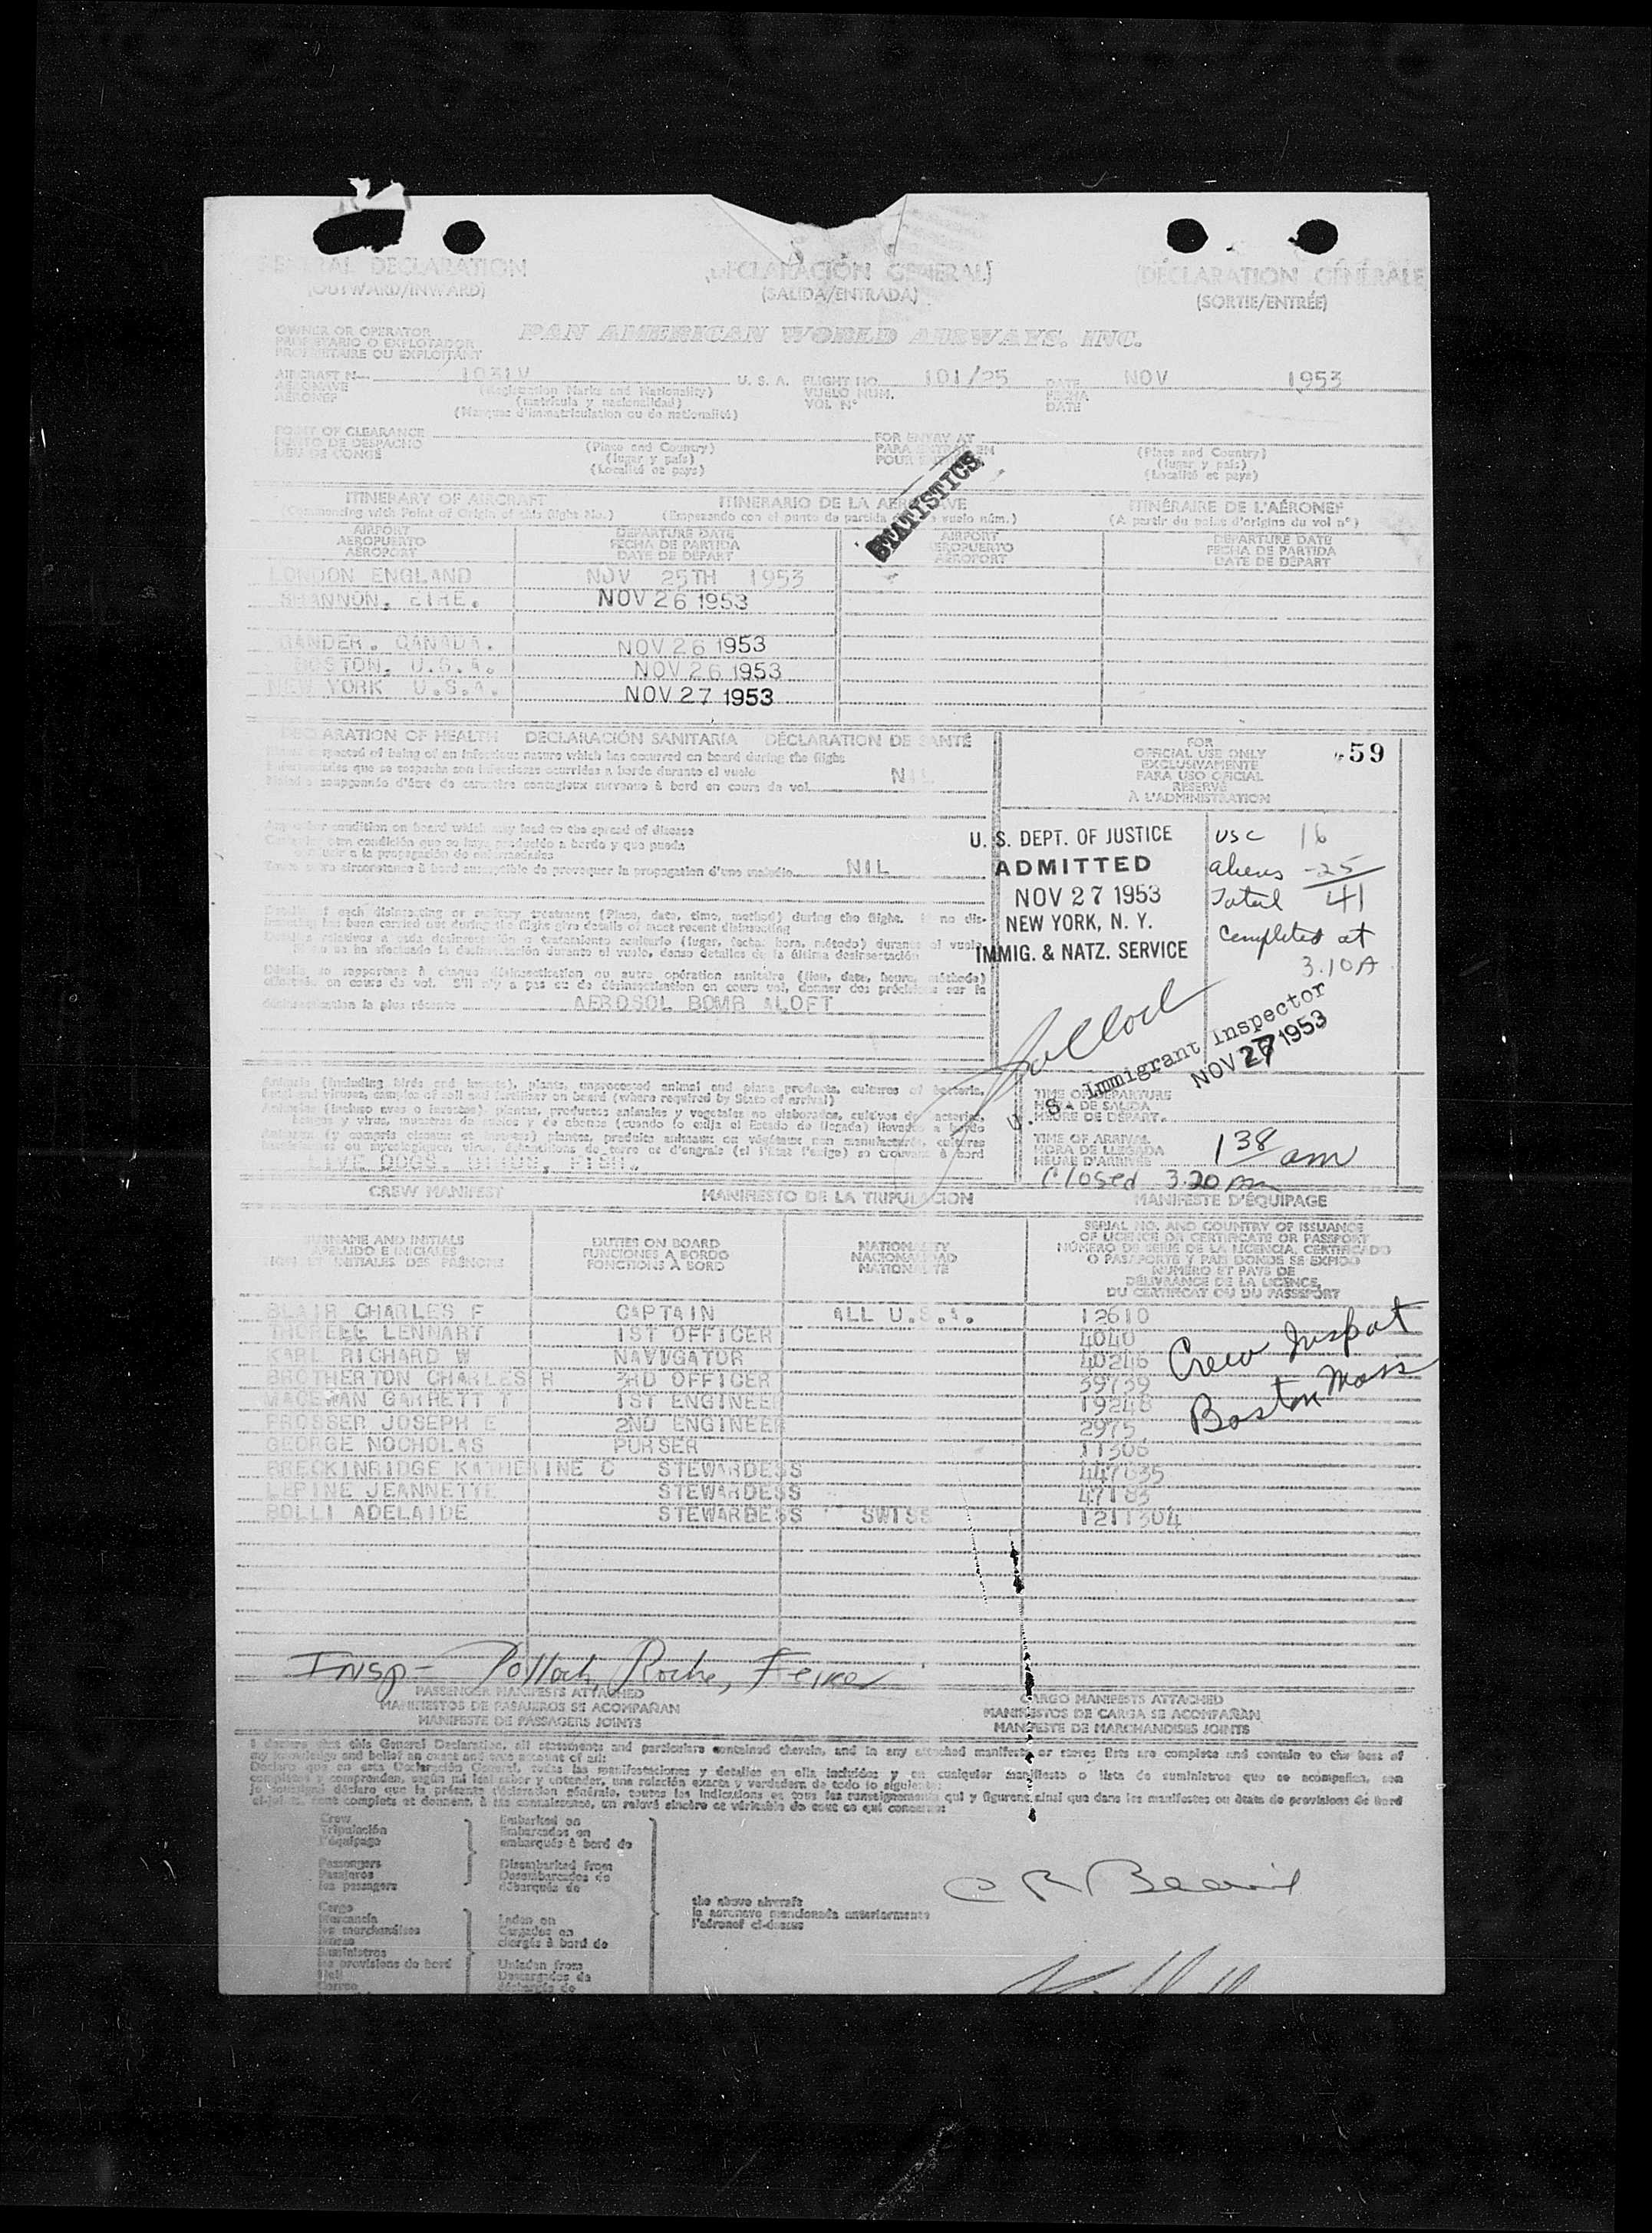 GENERAL DECLARATION
(OUTWARD/INWARD)
(DECLARACIÓN GENERAL)
(SALIDA/ENTRADA)
(DÉCLARATION GÉNÉRALE
(SORTIE/ENTRÉE)
OWNER OR OPERATOR
PROPIETARIO O EXPLOTADOR
PROPRIÉTAIRE OU EXPLOITANT
PAN AMERICAN WORLD AIRWAYS, INC.
AIRCRAFT N— 1031V U. S. A. FLIGHT NO. 101/25 DATE NOV 1953
AERONAVE (Registration Marks and Nationality) VUELO NUM. FECHA
AÉRONEF (matrícula y nacionalidad) VOL Nº DATE
(Marques d'immatriculation ou de nationalité)
POINT OF CLEARANCE FOR ENTRY AT
PUNTO DE DESPACHO (Place and Country) PARA ENTRAR EN (Place and Country)
LIEU DE CONGÉ (lugar y país) POUR (lugar y país)
(Localité et pays) (Localité et pays)
STATISTICS
ITINERARY OF AIRCRAFT ITINERARIO DE LA AERONAVE ITINÉRAIRE DE L'AÉRONEF
(Commencing with Point of Origin of this flight No.) (Empezando con el punto de partida vuelo núm.) (A partir du point d'origine du vol nº)
AIRPORT DEPARTURE DATE AIRPORT DEPARTURE DATE
AEROPUERTO FECHA DE PARTIDA AEROPUERTO FECHA DE PARTIDA
AÉROPORT DATE DE DÉPART AÉROPORT DATE DE DÉPART
LONDON ENGLAND NOV 25TH 1953
SHANNON, EIRE. NOV 26 1953
GANDER. CANADA. NOV 26 1953
BOSTON, U.S.A. NOV 26 1953
NEW YORK U.S.A. NOV 27 1953
DECLARATION OF HEALTH DECLARACIÓN SANITARIA DÉCLARATION DE SANTÉ
suspected of being of an infectious nature which has occurred on board during the flight
que se sospecha son infecciosas ocurridas a bordo durante el vuelo NIL
soupçonnée d'être de caractère contagieux survenue à bord en cours de vol
FOR
OFFICIAL USE ONLY
EXCLUSIVAMENTE
PARA USO OFICIAL
RÉSERVÉ
À L'ADMINISTRATION
59
Any other condition on board which may lead to the spread of disease
otra condición que se haya producido a bordo y que pueda
a la propagación de enfermedades
circonstance à bord susceptible de provoquer la propagation d'une maladie NIL
U. S. DEPT. OF JUSTICE
ADMITTED
NOV 27 1953
NEW YORK, N. Y.
IMMIG. & NATZ. SERVICE
USC 16
aliens -25
Total 41
Completed at
3.10A
Details of each disinsecting or sanitary treatment (Place, date, time, method) during the flight. If no dis-
insecting has been carried out during the flight give details of most recent disinsecting
Detalles relativos a cada desinsectación o tratamiento sanitario (lugar, fecha, hora, método) durante el vuelo.
no se ha efectuado la desinsectación durante el vuelo, denso detalles de la última desinsectación
Détails se rapportant à chaque désinsectisation ou autre opération sanitaire (lieu, date, heure, méthode)
effectuée en cours de vol. S'il n'y a pas eu de désinsectisation en cours vol, donner des précisions sur la
désinsectisation la plus récente AEROSOL BOMB ALOFT
U. S. Immigrant Inspector
NOV 27 1953
Animals (including birds and insects), plants, unprocessed animal and plant products, cultures of bacteria,
fungi and viruses, samples of soil and fertilizer on board (where required by State of arrival)
Animales (incluso aves o insectos) plantas, productos animales y vegetales no elaborados, cultivos de bacterias,
hongos y virus, muestras de suelos y de abonos (cuando lo exija el Estado de llegada) llevados a bordo
(y compris oiseaux et insectes) plantes, produits animaux ou végétaux non manufacturés, cultures
ou mycologiques, virus, échantillons de terre et d'engrais (si l'État l'exige) se trouvant à bord
LIVE DOGS, BIRDS, FISH.
TIME OF DEPARTURE
HORA DE SALIDA
HEURE DE DÉPART.
TIME OF ARRIVAL
HORA DE LLEGADA
HEURE D'ARRIVÉE
1 38 am
Closed 3.20 am
CREW MANIFEST MANIFIESTO DE LA TRIPULACION MANIFESTE D'ÉQUIPAGE
SURNAME AND INITIALS DUTIES ON BOARD NATIONALITY
APELLIDO E INICIALES FUNCIONES A BORDO NACIONALIDAD
NOM ET INITIALES DES PRÉNOMS FONCTIONS À BORD NATIONALITÉ
SERIAL NO. AND COUNTRY OF ISSUANCE
OF LICENCE OR CERTIFICATE OR PASSPORT
NÚMERO DE SERIE DE LA LICENCIA, CERTIFICADO
O PASAPORTE Y PAÍS DONDE SE EXPIDIO
NUMÉRO ET PAYS DE
DÉLIVRANCE DE LA LICENCE,
DU CERTIFICAT OU DU PASSEPORT
BLAIR CHARLES F CAPTAIN ALL U.S.A. 12610
THORELL LENNART 1ST OFFICER 4040
KARL RICHARD W NAVIGATOR 40246
BROTHERTON CHARLES R 3RD OFFICER 39739
MACEWAN GARRETT T 1ST ENGINEER 19248
PROSSER JOSEPH E 2ND ENGINEER 2975
GEORGE NOCHOLAS PURSER 11306
BRECKINRIDGE KATHERINE C STEWARDESS 447035
LEPINE JEANNETTE STEWARDESS 47183
BOLLI ADELAIDE STEWARDESS SWISS 1211304
Crew Inspat
Boston Mass
Insp- Pollock, Roche, Feiker
PASSENGER MANIFESTS ATTACHED CARGO MANIFESTS ATTACHED
MANIFIESTOS DE PASAJEROS SE ACOMPAÑAN MANIFIESTOS DE CARGA SE ACOMPAÑAN
MANIFESTE DE PASSAGERS JOINTS MANIFESTE DE MARCHANDISES JOINTS
I declare that this General Declaration, all statements and particulars contained therein, and in any attached manifests or stores lists are complete and contain to the best of
my knowledge and belief an exact and true account of all:
Declaro que en esta Declaración General, todas las manifestaciones y detalles en ella incluidos y en cualquier manifiesto o lista de suministros que se acompañan, son
completos y comprenden, según mi leal saber y entender, una relación exacta y verdadera de todo lo siguiente:
Je déclare que la présente déclaration générale, toutes les indications et tous les renseignements qui y figurent ainsi que dans les manifestes ou états de provisions de bord
ci-joints, sont complets et donnent, à ma connaissance, un relevé sincère et véritable de tout ce qui concerne:
Crew Embarked on
Tripulación Embarcados en
l'équipage embarqués à bord de
Passengers Disembarked from
Pasajeros Desembarcados de
les passagers débarqués de
the above aircraft
la aeronave mencionada anteriormente
l'aéronef ci-dessus
Cargo
Mercancía Laden on
les marchandises Cargados en
Stores chargés à bord de
Suministros
les provisions de bord Unladen from
Mail Descargados de
Correo déchargés de